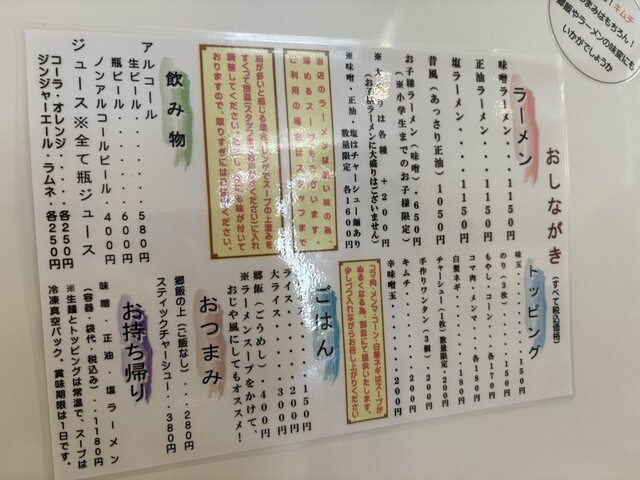 おしながき
(すべて税込価格)
ラーメン
味噌ラーメン・・・・1150円
正油ラーメン・・・・1150円
塩ラーメン・・・・・1150円
昔風(あっさり正油)1050円
お子様ラーメン(味噌)・650円
(※小学生までのお子様限定)
※大盛りは各種 +200円
(お子様ラーメンに大盛りはございません)
※味噌・正油・塩はチャーシュー麺あり
数量限定 各1600円
当店のラーメンは濃い味の為、
薄めるスープもございます。
ご利用の場合はスタッフまで
油が多いと感じる場合、レンゲでスープの上澄みを
すくって別皿(スタッフまでお声がけください)に入れ
調整してください。ただし、油にも味が付いて
おりますので、取りすぎにはご注意ください。
飲み物
アルコール
生ビール・・・・・・580円
瓶ビール・・・・・・600円
ノンアルコールビール 400円
ジュース※全て瓶ジュース
コーラ・オレンジ・・・・各250円
ジンジャーエール・ラムネ・各250円
トッピング
味玉・・・・・・・・150円
のり(3枚)・・・・・150円
もやし・コーン・・・各170円
コマ肉・メンマ・・・各180円
白髪ネギ・・・・・・180円
チャーシュー(1枚)数量限定・200円
手作りワンタン(3個)・200円
キムチ・・・・・・・200円
辛味噌玉・・・・・・200円
「コマ肉・メンマ・コーン・白髪ネギはスープが
ぬるくなる為、別皿にて提供いたします。
少しづつ入れながらお召し上がりください」
ごはん
ライス・・・・・・・150円
大ライス・・・・・・200円
300円
郷飯(ごうめし) 400円
※ラーメンスープをかけて、
おじや風にしてもオススメ!
おつまみ
郷飯の上(ご飯なし)・・・280円
スティックチャーシュー・・380円
お持ち帰り
味噌・正油・塩ラーメン
(容器・袋代・税込み)・・1180円
※生麺とトッピングは常温で、スープは
冷凍真空パック、賞味期限は1日です。
キムチ
おつまみはもちろん!
御飯やラーメンの味変にも
いかがでしょうか